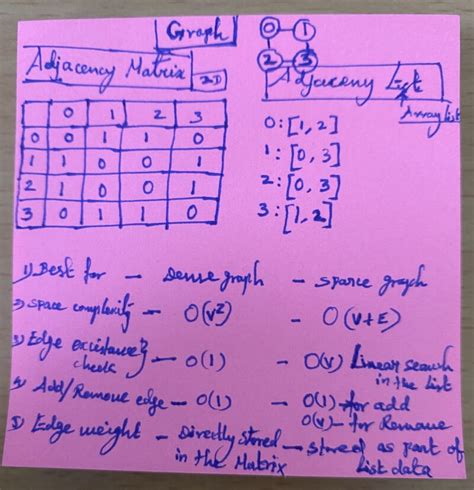 Graph
0 1
2 3
Adjacency Matrix 2D
Adjaceny List
Array list
0 1 2 3
0 0 1 1 0
1 1 0 0 1
2 1 0 0 1
3 0 1 1 0
0:[1,2]
1:[0,3]
2:[0,3]
3:[1,2]
1) Best for - Dense graph - sparce graph
2) Space complexity - O(V²) - O(V+E)
3) Edge existance check - O(1) - O(V) Linear search in the list
4) Add/Remove edge - O(1) - O(1) - for add
O(V) - for Remove
5) Edge weight - Directly stored in the Matrix - stored as part of list data